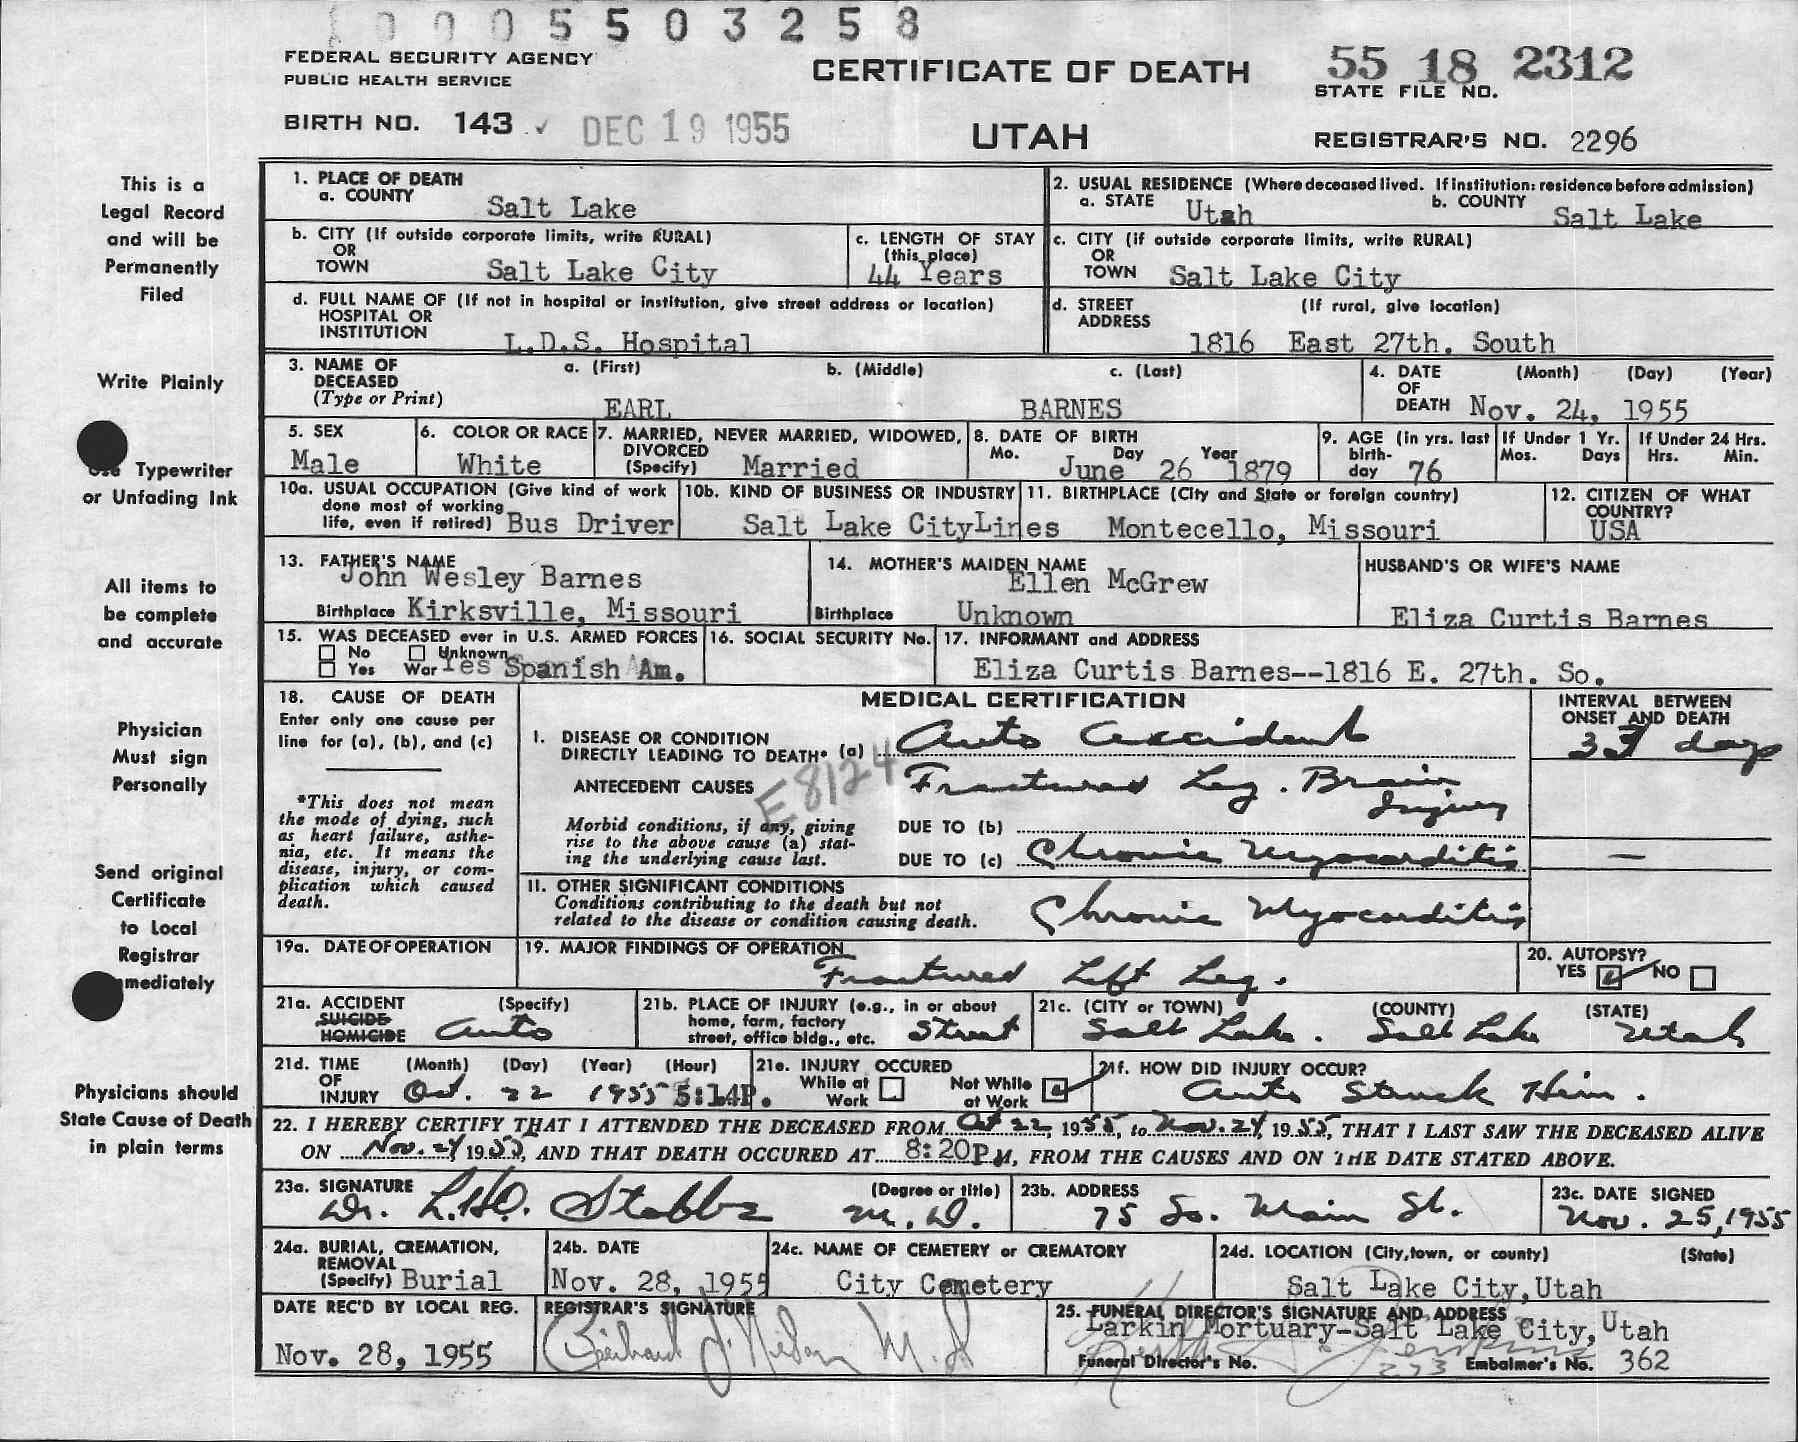 0005503258
FEDERAL SECURITY AGENCY
PUBLIC HEALTH SERVICE
CERTIFICATE OF DEATH
55 18 2312
STATE FILE NO.
BIRTH NO. 143 ✓ DEC 19 1955
UTAH
REGISTRAR'S NO. 2296
This is a
Legal Record
and will be
Permanently
Filed
Write Plainly
Typewriter
or Unfading Ink
All items to
be complete
and accurate
Physician
Must sign
Personally
Send original
Certificate
to Local
Registrar
mediately
Physicians should
State Cause of Death
in plain terms
1. PLACE OF DEATH
a. COUNTY Salt Lake
2. USUAL RESIDENCE (Where deceased lived. If institution: residence before admission)
a. STATE Utah b. COUNTY Salt Lake
b. CITY (If outside corporate limits, write RURAL)
OR
TOWN Salt Lake City
c. LENGTH OF STAY
(this place)
44 Years
c. CITY (if outside corporate limits, write RURAL)
OR
TOWN Salt Lake City
d. FULL NAME OF (If not in hospital or institution, give street address or location)
HOSPITAL OR
INSTITUTION L.D.S. Hospital
d. STREET (If rural, give location)
ADDRESS
1816 East 27th. South
3. NAME OF a. (First) b. (Middle) c. (Last)
DECEASED
(Type or Print) EARL BARNES
4. DATE (Month) (Day) (Year)
OF
DEATH Nov. 24, 1955
5. SEX
Male
6. COLOR OR RACE
White
7. MARRIED, NEVER MARRIED, WIDOWED,
DIVORCED
(Specify) Married
8. DATE OF BIRTH
Mo. Day Year
June 26 1879
9. AGE (in yrs. last
birth-
day 76
If Under 1 Yr.
Mos. Days
If Under 24 Hrs.
Hrs. Min.
10a. USUAL OCCUPATION (Give kind of work
done most of working
life, even if retired) Bus Driver
10b. KIND OF BUSINESS OR INDUSTRY
Salt Lake CityLines
11. BIRTHPLACE (City and State or foreign country)
Montecello, Missouri
12. CITIZEN OF WHAT
COUNTRY?
USA
13. FATHER'S NAME
John Wesley Barnes
Birthplace Kirksville, Missouri
14. MOTHER'S MAIDEN NAME
Ellen McGrew
Birthplace Unknown
HUSBAND'S OR WIFE'S NAME
Eliza Curtis Barnes
15. WAS DECEASED ever in U.S. ARMED FORCES
No Unknown
Yes War Yes Spanish Am.
16. SOCIAL SECURITY No.
17. INFORMANT and ADDRESS
Eliza Curtis Barnes--1816 E. 27th. So.
18. CAUSE OF DEATH
Enter only one cause per
line for (a), (b), and (c)
*This does not mean
the mode of dying, such
as heart failure, asthe-
nia, etc. It means the
disease, injury, or com-
plication which caused
death.
MEDICAL CERTIFICATION
INTERVAL BETWEEN
ONSET AND DEATH
I. DISEASE OR CONDITION
DIRECTLY LEADING TO DEATH* (a) Auto Accident
days
ANTECEDENT CAUSES Fractured Leg. Brain
Injury
E8124
Morbid conditions, if any, giving
rise to the above cause (a) stat-
ing the underlying cause last.
DUE TO (b)
DUE TO (c) Chronic Myocarditis —
II. OTHER SIGNIFICANT CONDITIONS
Conditions contributing to the death but not
related to the disease or condition causing death.
Chronic Myocarditis
19a. DATE OF OPERATION
19. MAJOR FINDINGS OF OPERATION
Fractured Left Leg.
20. AUTOPSY?
YES NO
21a. ACCIDENT (Specify)
SUICIDE
HOMICIDE Auto
21b. PLACE OF INJURY (e.g., in or about
home, farm, factory
street, office bldg., etc. Street
21c. (CITY or TOWN) (COUNTY) (STATE)
Salt Lake. Salt Lake Utah
21d. TIME (Month) (Day) (Year) (Hour)
OF
INJURY Oct. 22 1955 5:14P.
21e. INJURY OCCURED
While at Work
Not While at Work
21f. HOW DID INJURY OCCUR?
Auto Struck Him.
22. I HEREBY CERTIFY THAT I ATTENDED THE DECEASED FROM Oct 22, 1955, to Nov. 24, 1955, THAT I LAST SAW THE DECEASED ALIVE
ON Nov. 24 1955, AND THAT DEATH OCCURED AT 8:20P M, FROM THE CAUSES AND ON THE DATE STATED ABOVE.
23a. SIGNATURE (Degree or title)
Dr. L.H.O. Stobbe M.D.
23b. ADDRESS
75 So. Main St.
23c. DATE SIGNED
Nov. 25, 1955
24a. BURIAL, CREMATION,
REMOVAL
(Specify) Burial
24b. DATE
Nov. 28, 1955
24c. NAME OF CEMETERY or CREMATORY
City Cemetery
24d. LOCATION (City, town, or county) (State)
Salt Lake City, Utah
DATE REC'D BY LOCAL REG.
Nov. 28, 1955
REGISTRAR'S SIGNATURE
25. FUNERAL DIRECTOR'S SIGNATURE AND ADDRESS
Larkin Mortuary-Salt Lake City, Utah
Funeral Director's No. 273 Embalmer's No. 362